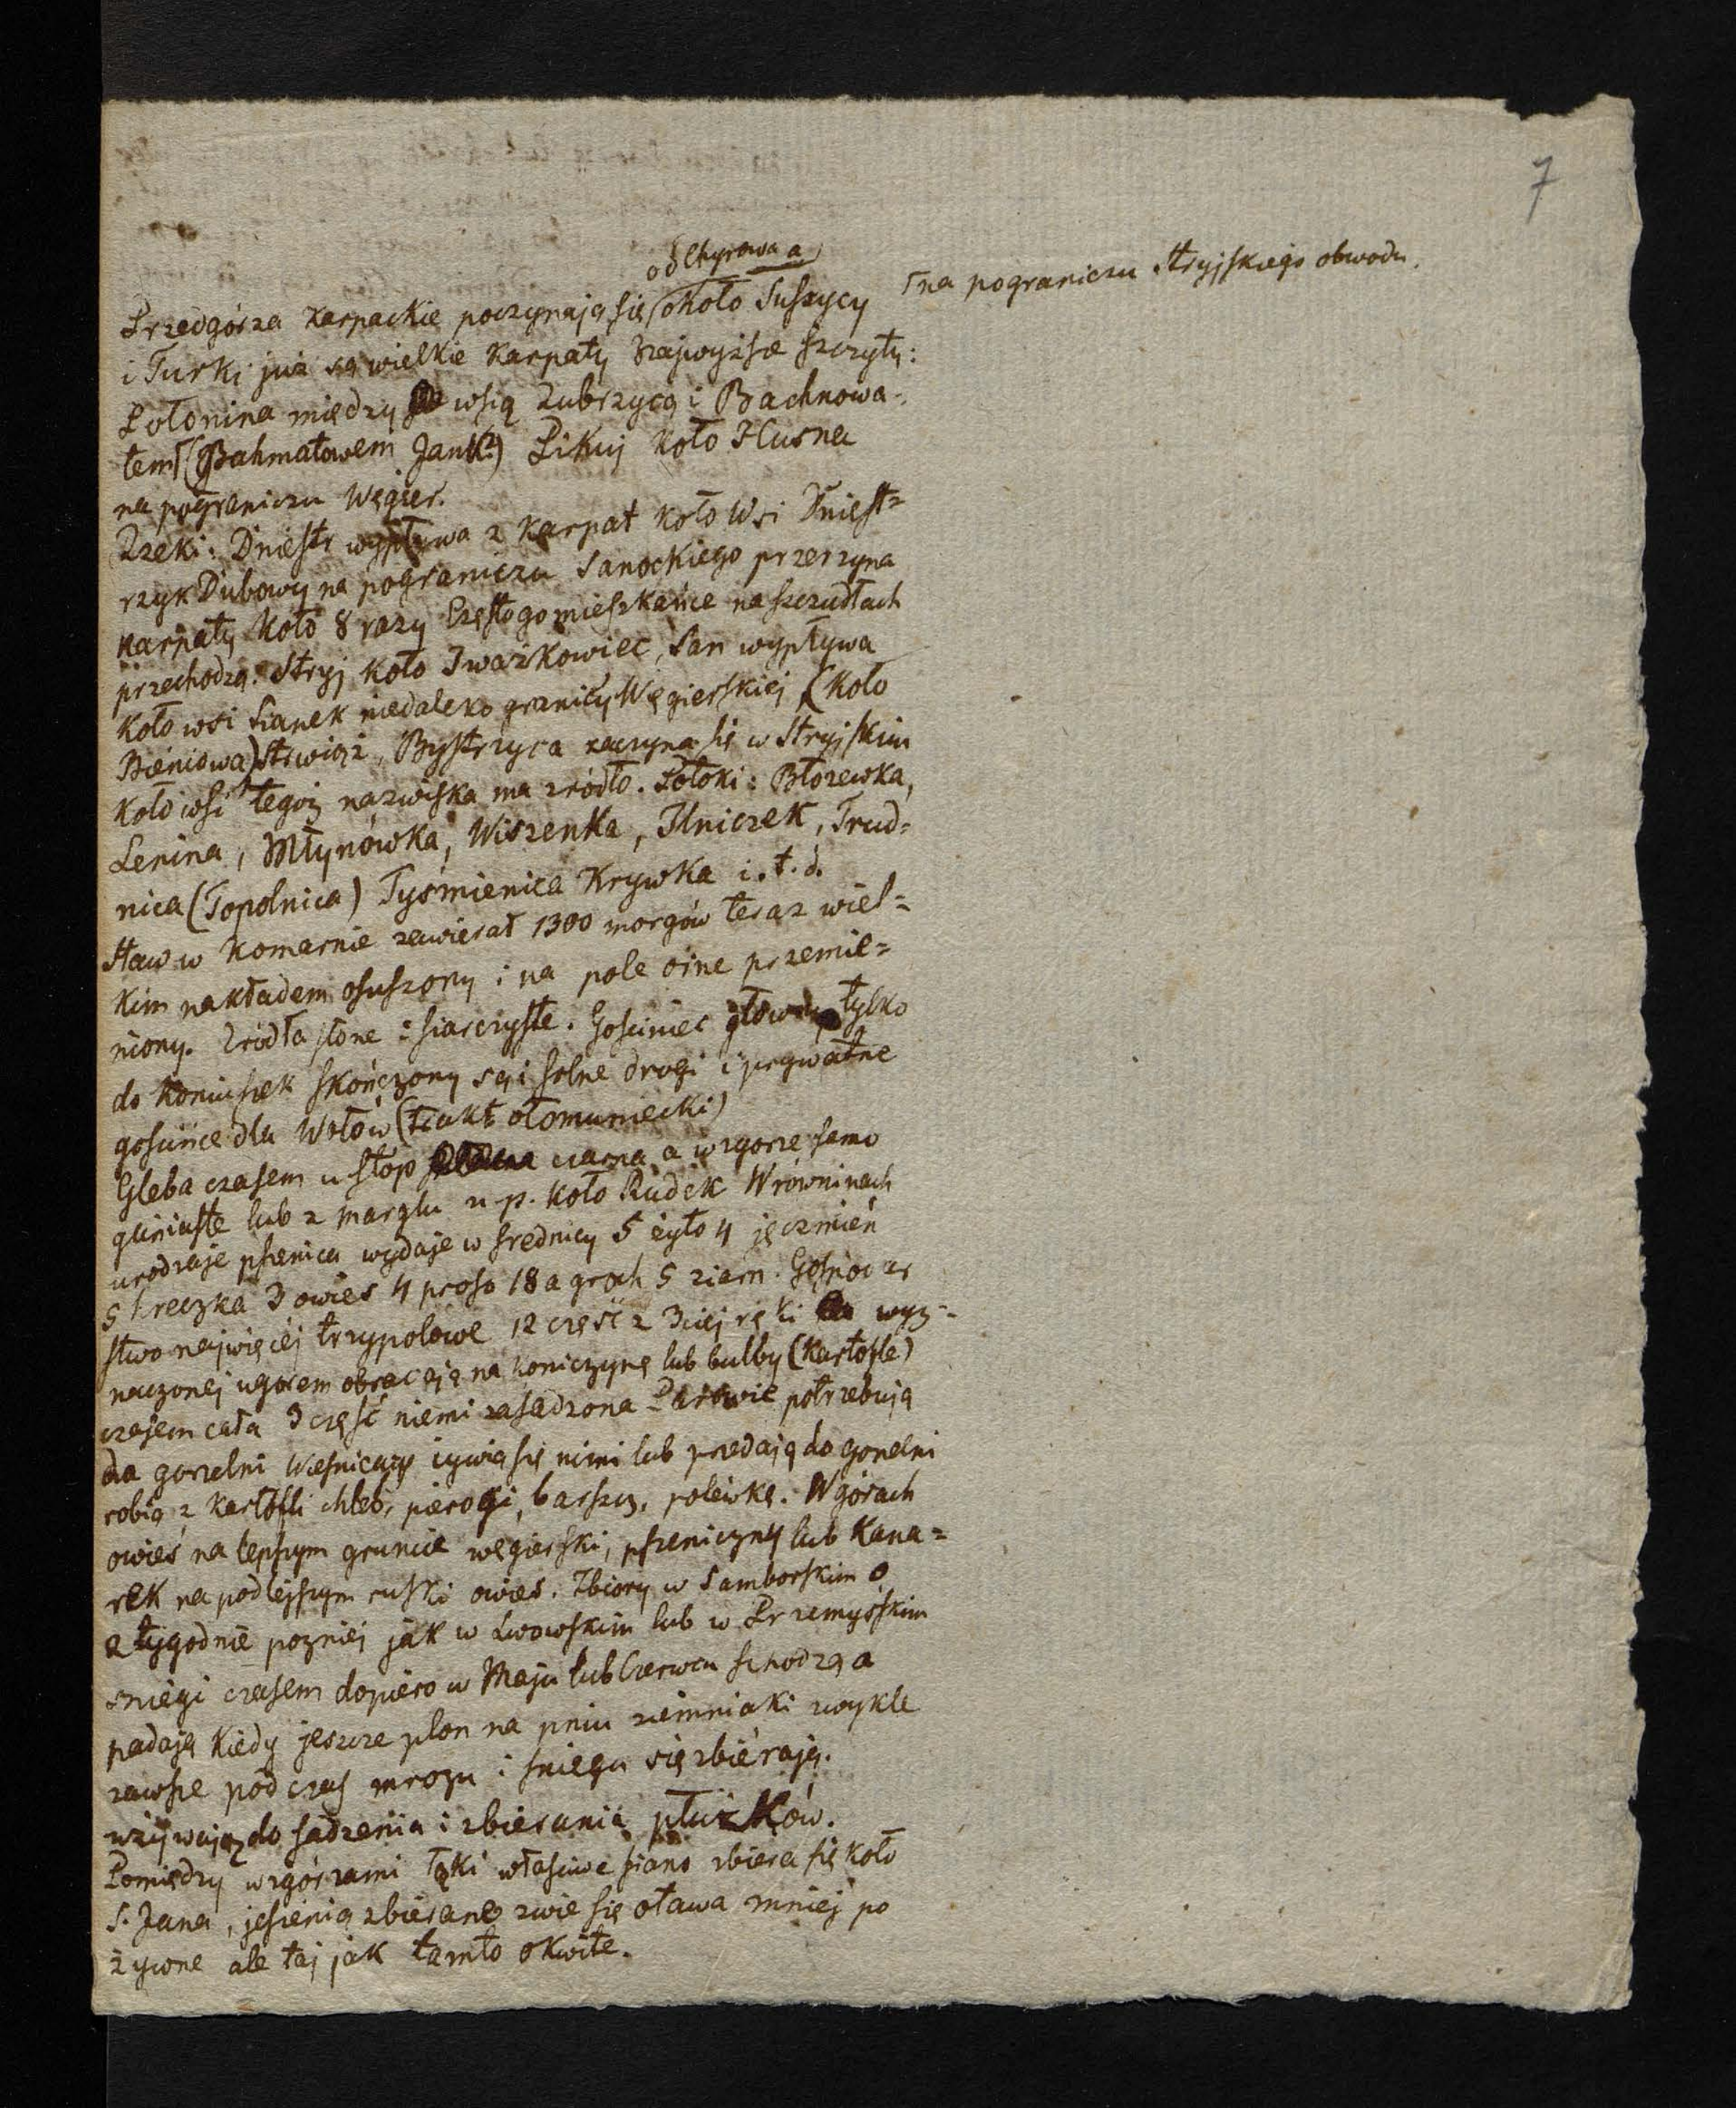 7
od Chyrowa a
Przedgórza karpackie poczynają się około Suszycy
⌈na pograniczu stryjskiego obwodu.
i Turki już są wielkie Karpaty Najwyższe szczyty:
Połonina między wsią Zubrzycą i Bachnowa-
tem⌈(Bahmatowem Jank?) Pikuj koło Husna
na pograniczu Węgier.
Rzeki: Dniestr wypływa z Karpat koło wsi Dniest=
rzyk Dubowy na pograniczu Sanockiego przerzyna
Karpaty koło 8 razy Często go mieszkańce na szczudłach
przechodzą. Stryj koło Iważkowiec, San wypływa
koło wsi Sianek niedaleko granicy Węgierskiej (koło
Bieniowa) Strwiąż, Bystrzyca zaczyna się w Stryjskim
koło wsi tegoż nazwiska ma zródło. Potoki: Błozewka,
Lenina, Młynówka, Wiszenka, Ilniczek, Trud=
nica (Topolnica) Tyśmienica Krywka i. t. d.
Staw w Komarnie zawierał 1300 morgów teraz wiel=
kim nakładem osuszony i na pole orne przemie=
niony. Zródła słone i siarczyste. Gościniec główny tylko
do Koniuszek skończony są i solne drogi i prywatne
gościńce dla Wołów (trakt ołomuniecki)
Gleba czasem u stop czarna a w zgorze samo
gliniaste lub z marglu n.p. koło Rudek W równinach
urodzaje pszenica wydaje w srednicy 5 żyto 4 jęczmień
5 hreczka 3 owies 4 proso 18 a groch 5 ziarn. Gospodar
stwo najwięcej trzypolowe 12 część z 3ciej ręki wyz=
naczonej ugorem obracają na koniczynę lub bulby (kartofle)
czasem cała 3 część niemi zasadzona Panowie potrzebują
do gorzelni Wieśniacy żywią się nimi lub przedają do gorzelni
robią z kartofli chleb, pierogi, barszcz, polewkę. W górach
owies na lepszym gruncie węgierski, pszeniczny lub Kana=
rek na podlejszym ruski owies. Zbiory w Samborskim o
2 tygodnie pozniej jak w Lwowskim lub w Przemyskim
sniegi czasem dopiero w Maju lub Czerwcu schodzą a
padają kiedy jeszcze plon na pniu ziemniaki zwykle
zawsze pod czas mrozu i sniegu się zbierają.
używają do sadzenia i zbierania płużków.
Pomiędzy wzgórzami łąki właściwe siano zbiera się koło
S. Jana, jesienią zbierane zwie się otawa mniej po
żywne ale taj jak tamto okwite.